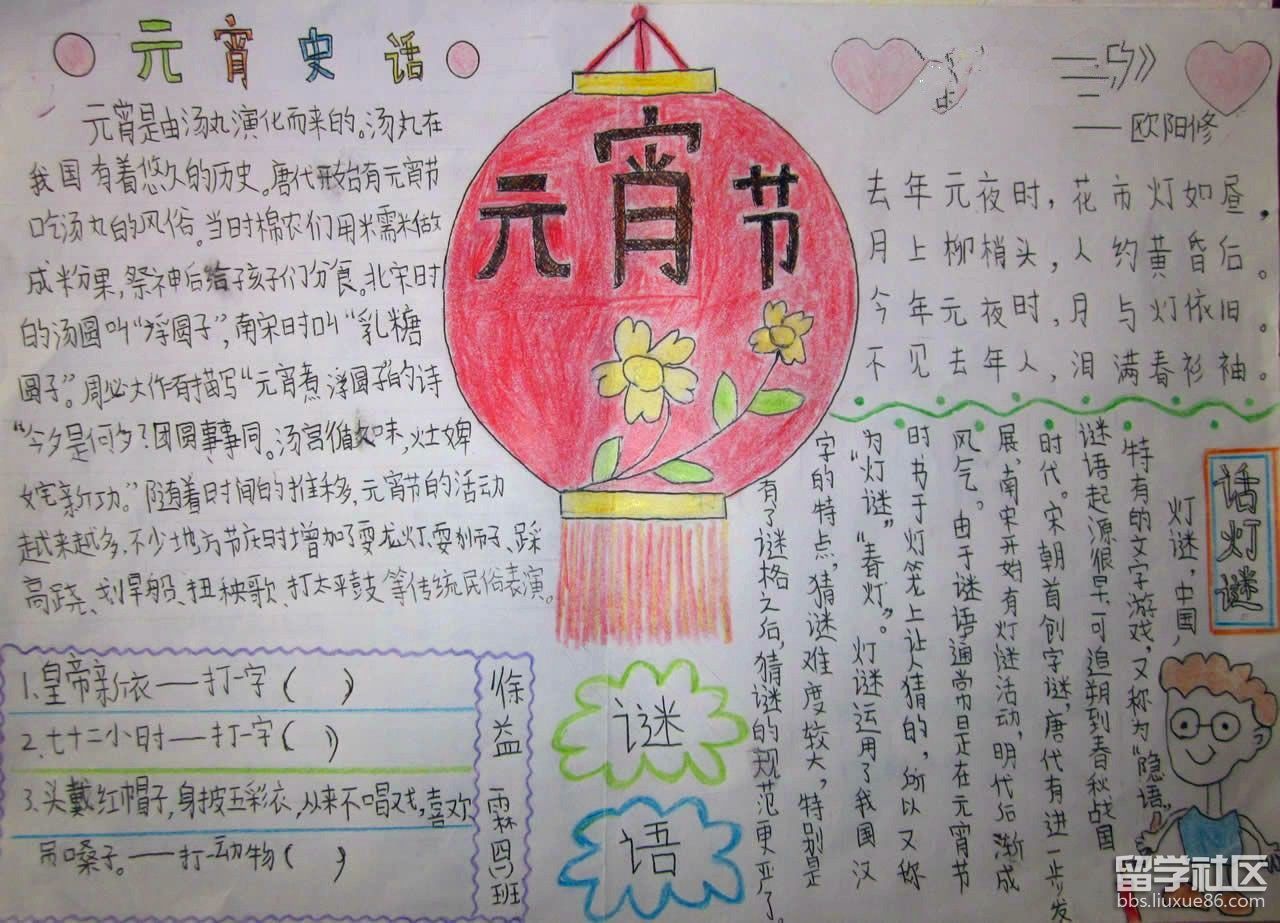 元宵史话
元宵是由汤丸演化而来的。汤丸在
我国有着悠久的历史。唐代开始有元宵节
吃汤丸的风俗。当时棉农们用米需米做
成米分果，祭神后给孩子们分食。北宋时
的汤圆叫“浮圆子”，南宋时叫“乳糖
圆子”。周必大作有描写“元宵煮浮圆子”的诗
“今夕是何夕？团圆事事同。汤宫循 味，灶婢
诧新功。”随着时间的推移，元宵节的活动
越来越多，不少地方节庆时增加了耍龙灯、耍狮子、踩
高跷、划旱船、扭秧歌、打太平鼓等传统民俗表演。
元宵节
——欧阳修
去年元夜时，花市灯如昼，
月上柳梢头，人约黄昏后。
今年元夜时，月与灯依旧。
不见去年人，泪满春衫袖。
话灯谜
灯谜，中国，
特有的文字游戏，又称为“隐语”
谜语起源很早，可追朔到春秋战国
时代。宋朝首创字谜，唐代有进一步发
展，南宋开始有灯谜活动，明代后渐成
风气。由于谜语通常日正在元宵节
时书于灯笼上让人猜的，所以又称
为“灯谜”“春灯”。灯谜运用了我国汉
字的特点，猜谜难度较大，特别是
有了谜格之后，猜谜的规范更严了。
1.皇帝新衣——打一字（ ）
2.七十二小时——打一字（ ）
3.头戴红帽子，身披五彩衣，从来不唱戏，喜欢
吊嗓子。——打一动物（ ）
徐益霖 四四班
谜
语
留学社区
bbs.liuxue86.com